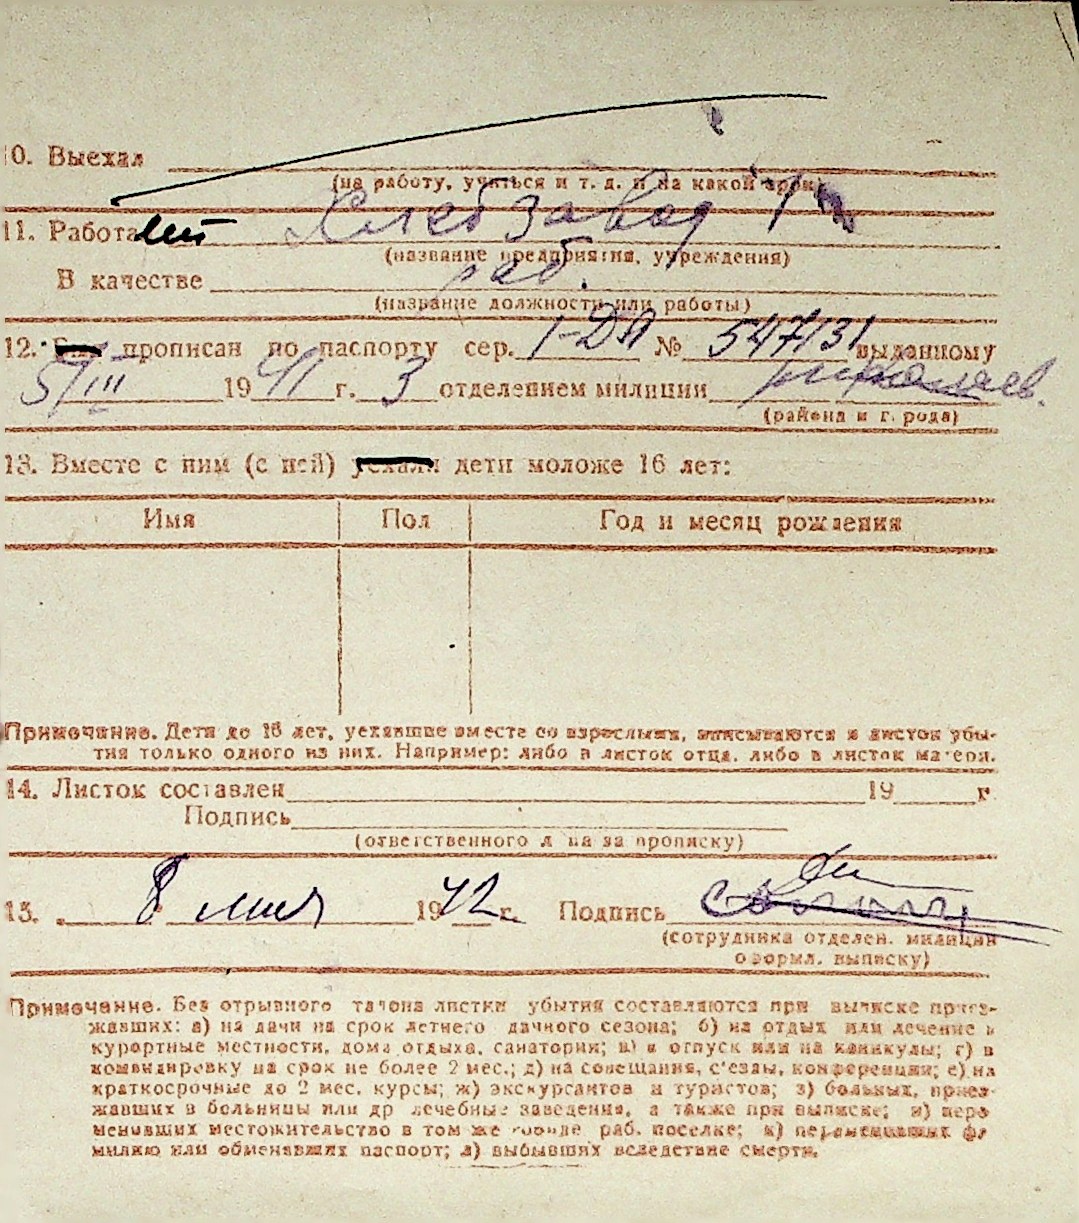 10. Выехал
(на работу, учиться и т. д. и на какой срок)
11. Работает Хлебзавод 1
(название предприятия, учреждения)
В качестве раб.
(название должности или работы)
12. Был прописан по паспорту сер. I-ДЛ № 547131 выданному
5/III 1941 г. 3 отделением милиции Николаев.
(района и г. рода)
13. Вместе с ним (с ней) уехали дети моложе 16 лет:
Имя Пол Год и месяц рождения
Примечание. Дети до 16 лет, уехавшие вместе со взрослыми, вписываются в листок убы-
тия только одного из них. Например: либо в листок отца, либо в листок матери.
14. Листок составлен 19 г.
Подпись
(ответственного л ца за прописку)
15. 8 мая 1942 г. Подпись
(сотрудника отделен. милиции
оформл. выписку)
Примечание. Без отрывного талона листки убытия составляются при выписке приез-
жавших: а) на дачи на срок летнего дачного сезона; б) на отдых или лечение в
курортные местности, дома отдыха, санатории; в) в отпуск или на каникулы; г) в
командировку на срок не более 2 мес.; д) на совещания, с'езды, конференции; е) на
краткосрочные до 2 мес. курсы; ж) экскурсантов и туристов; з) больных, приез-
жавших в больницы или др лечебные заведения, а также при выписке; и) пере-
менивших местожительство в том же городе, раб. поселке; к) переменивших фа
милию или обменявших паспорт; л) выбывших вследствие смерти.